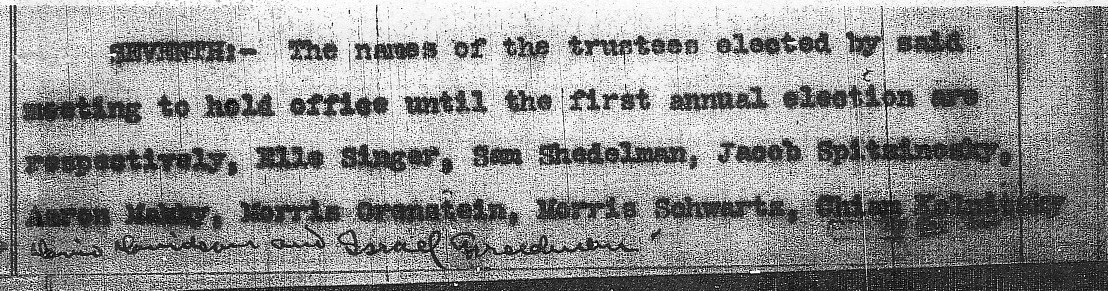 SEVENTH:- The names of the trustees elected by said
meeting to hold office until the first annual election are
respectively, Elle Singer, Sam Shedelman, Jacob
Aaron Morris Orenstein, Morris Schwartz,
Davidson and Israel